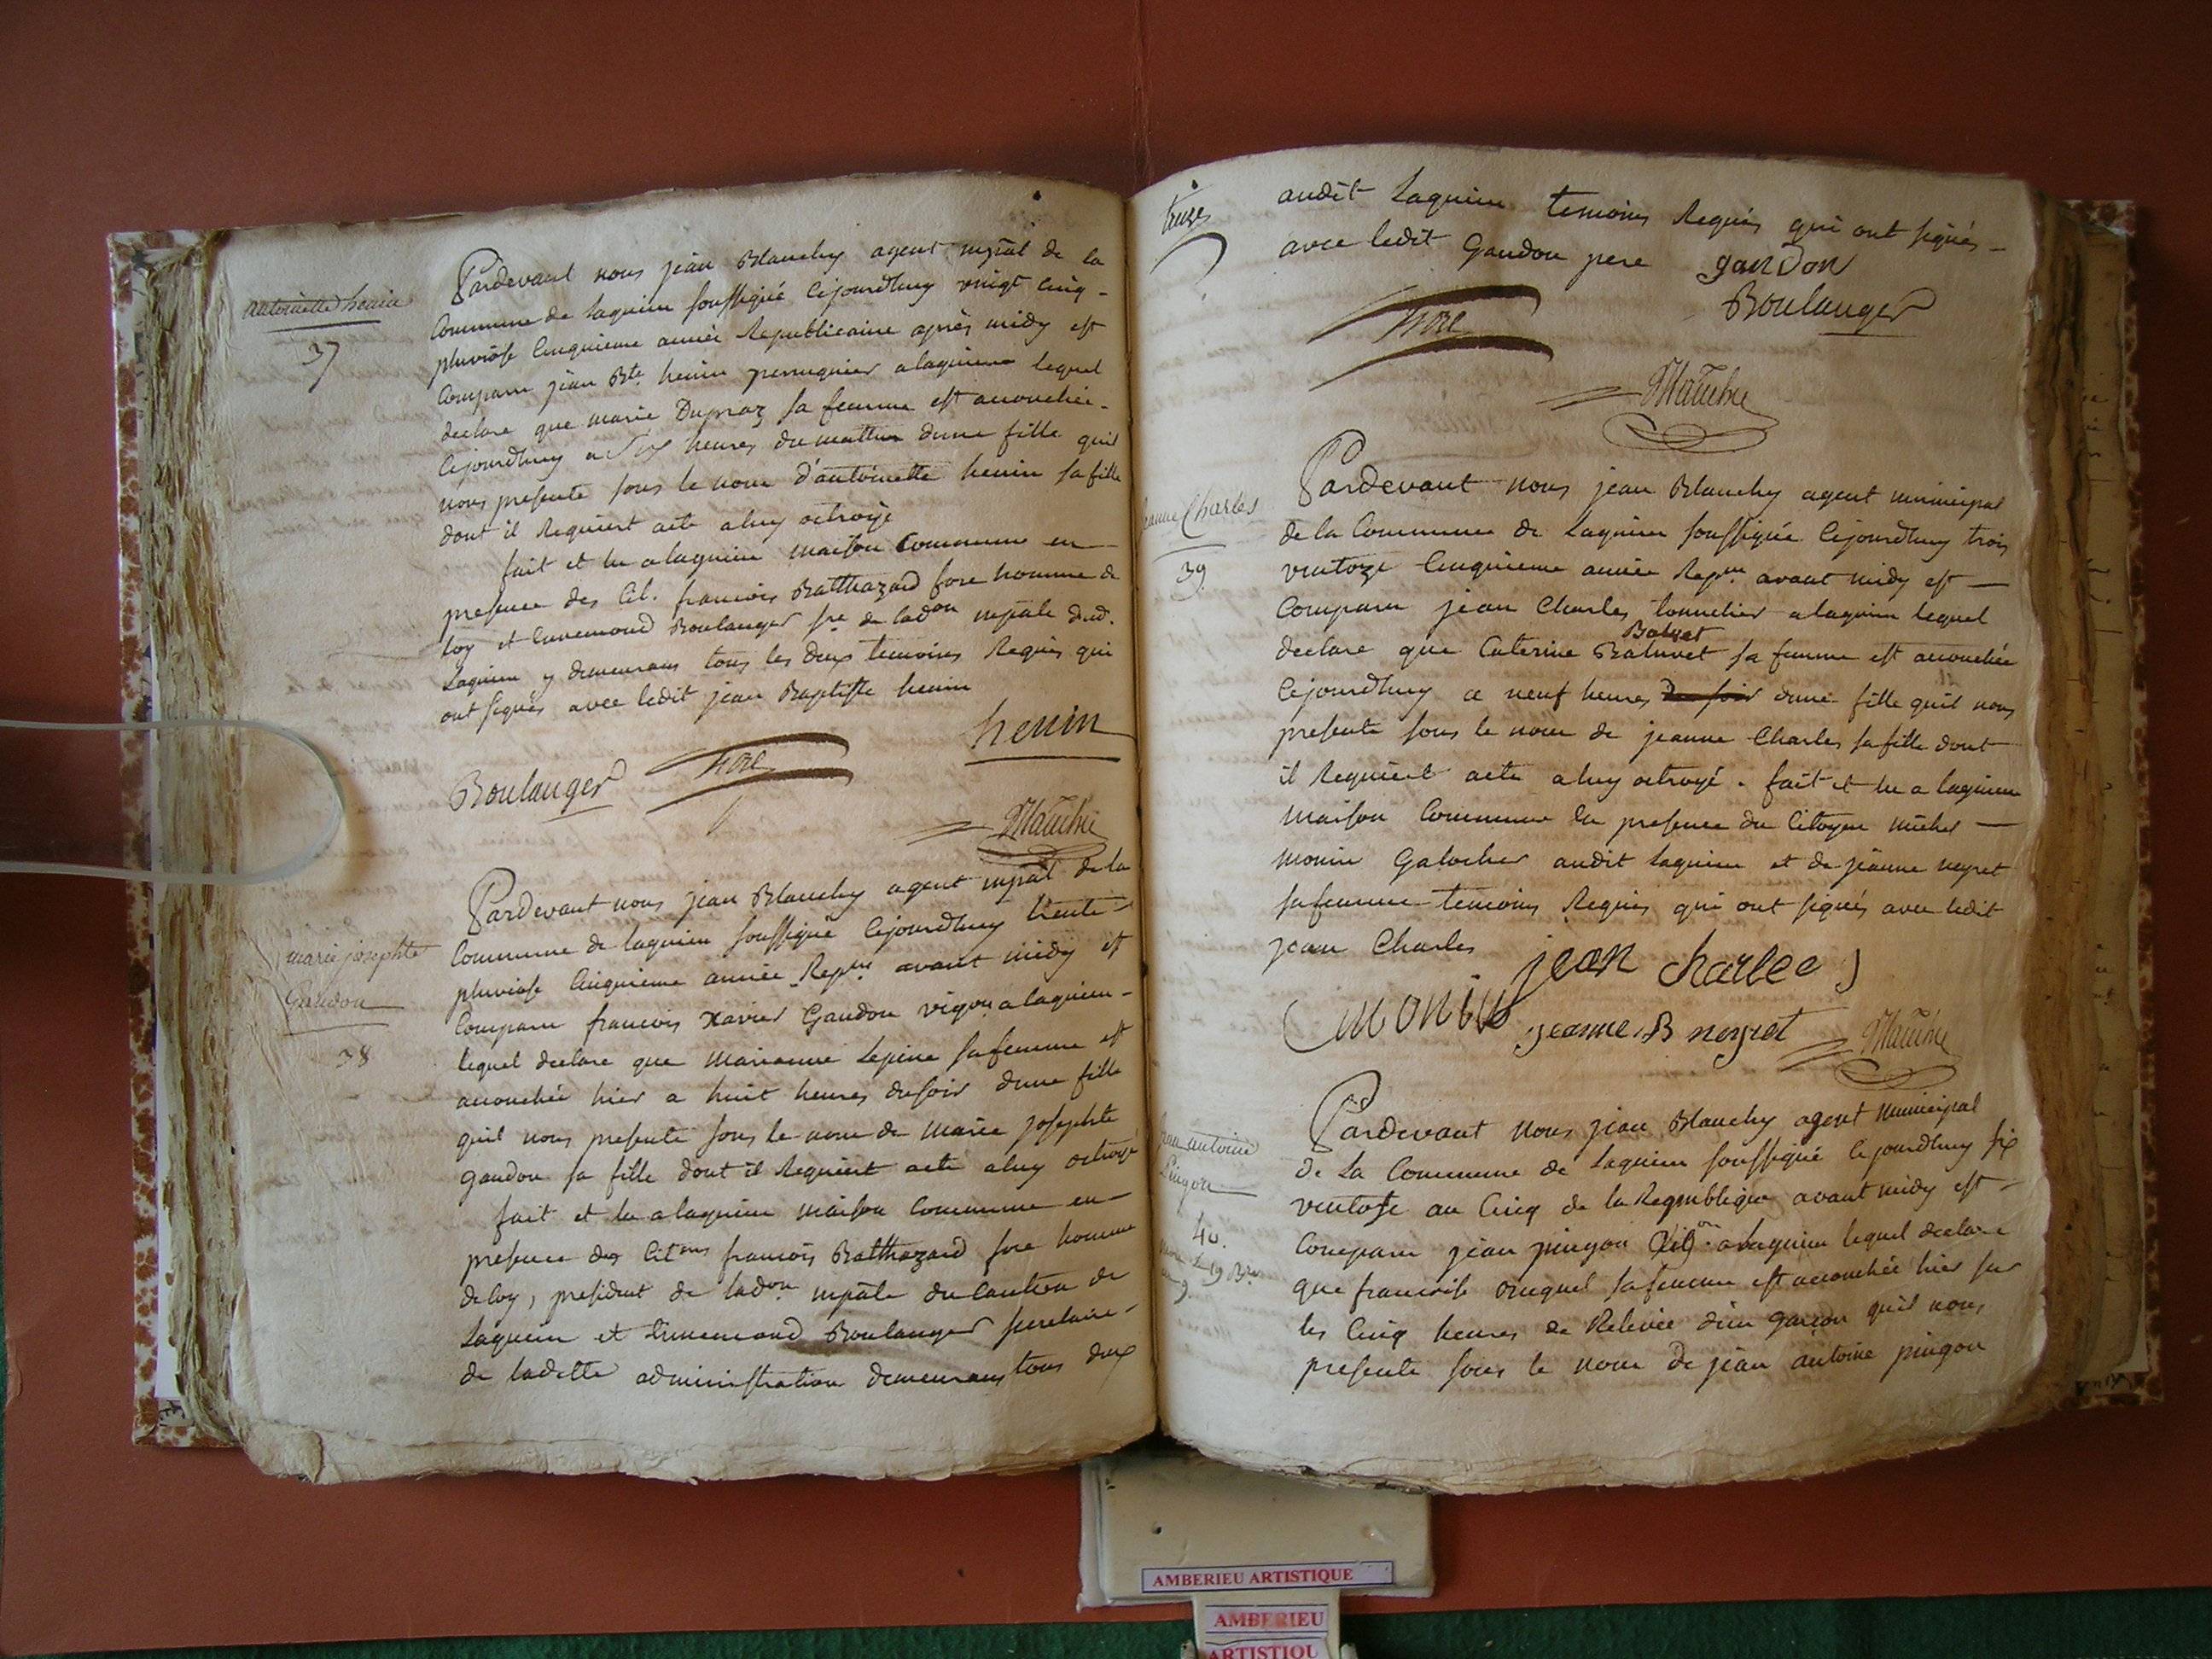 antoinette henin
37
Pardevant nous jean Blanchy agent mpal de la
Commune de Lagnieu soussigné Cejourdhuy vingt cinq -
pluviose Cinquieme année Republicaine après midy est
Comparu jean Bte. henin perruquier a lagnieu lequel
declare que marie Dupraz sa femme est accouchée -
Cejourdhuy a Six heures du mattin dune fille quil
nous presente sous le nom d'antoinette henin sa fille
dont il Requiert acte a luy octroyé
fait et lu a lagnieu maison Commune en
presence des Cit. francois Balthazard fore homme de
loy et Ennemond Boulanger sre de ladon mpale dud.
Lagnieu y demeurans tous les deux temoins Requis qui
ont signés avec ledit jean Baptiste henin
henin
Boulanger fore
Blanchy
marie josephte
Gaudon
38
Pardevant nous jean Blanchy agent mpal de la
Commune de lagnieu soussigné Cejourdhuy trente -
pluviose Cinquieme année Repne avant midy est
Comparu francois Xavier Gandon vigon a lagnieu -
lequel declare que Marianne Lepine sa femme est
accouchée hier a huit heures du soir dune fille
quil nous presente sous le nom de Marie josephte
gandon sa fille dont il Requiert acte a luy octroyé
fait et lu a lagnieu maison Commune en
presence des Citens francois Balthazard fore homme
de loy, president de ladon mpale du Canton de
Lagnieu et Ennemond Boulanger secretaire -
de ladette administration demeurans tous deux
treize
audit Lagnieu temoins Requis qui ont signés -
avec ledit Gandon pere gandon
Boulanger
fore
Blanchy
jeanne Charles
39
Pardevant nous jean Blanchy agent municipal
de la Commune de Lagnieu soussigné Cejourdhuy trois
ventoze Cinquieme année Repne avant midy est
Comparu jean Charles tonnelier a lagnieu lequel
Baluvet
declare que Caterine Baluvet sa femme est accouchée
Cejourdhuy a neuf heures du soir dune fille quil nous
presente sous le nom de jeanne Charles sa fille dont
il Requiert acte a luy octroyé. fait et lu a lagnieu
Maison Commune En presence du Citoyen michel
monin Galocher audit Lagnieu et de jeanne neyret
sa femme temoins Requis qui ont signés avec ledit
jean Charles
jean charlee
monin jeanne B neyret Blanchy
jean antoine
Pingon
40.
Pardevant nous jean Blanchy agent Municipal
de La Commune de Lagnieu soussigné Cejourdhuy six
ventose an Cinq de la Republique avant midy est
Comparu jean pingon a lagnieu lequel declare
que francoise sa femme est accouchée hier sur
les Cinq heures de Relevée d'un garçon quil nous
presente sous le nom de jean antoine pingon
AMBERIEU ARTISTIQUE
AMBERIEU
ARTISTIQU